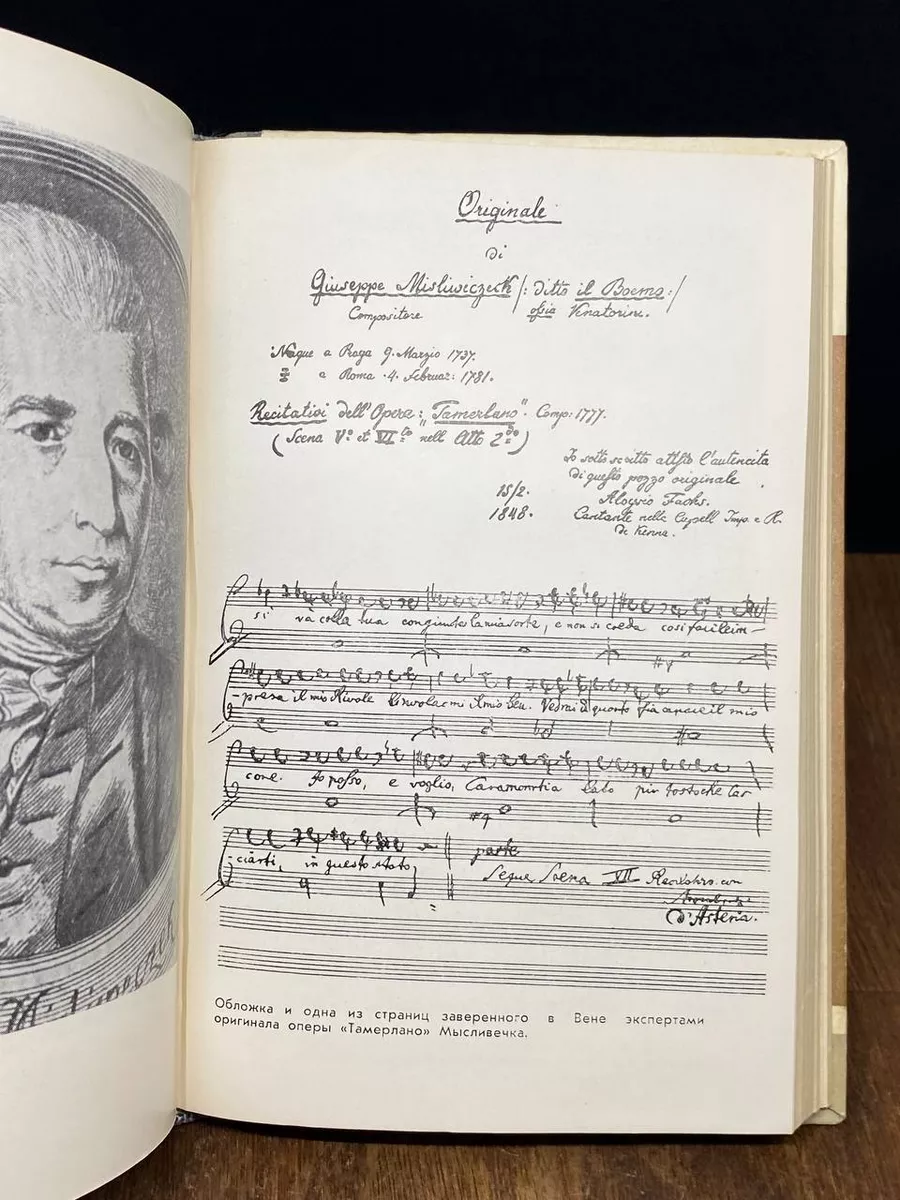 Originale
di
Giuseppe Misliwiczeck /: ditto il Boemo :/
Compositore ossia Venatorini.
Naque a Praga 9. Marzio 1737.
a Roma 4. Februar: 1781.
Recitativi dell'Opera: "Tamerlano". Comp: 1777.
(Scena V.º et VI.to nell Atto 2.do)
Io sotto scritto attesto l'autencita
di questo pozzo originale
15/2. Aloysio Fuchs.
1848. Cantante nella Capell Imp. e R.
di Vienna.
si và colla tua congiunta la mia sorte, e non si creda così facileim-
-presa il mio Rivale il mio Vedrai quanto fia il mio
core. Io posso, e voglio, lato più tosto che las-
-ciarti, in questo stato,
parte
Segue Scena VII con
d'Asteria.
Обложка и одна из страниц заверенного в Вене экспертами
оригинала оперы «Тамерлано» Мысливечка.